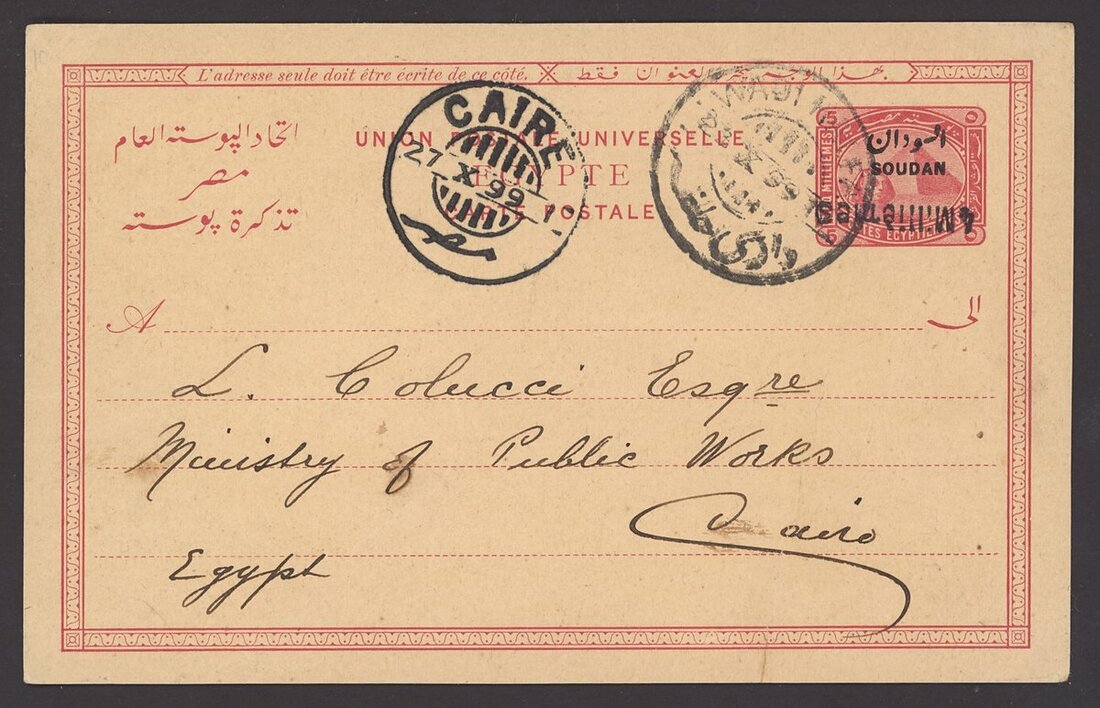 L'adresse seule doit être écrite de ce côté.
بهذا الوجه يحرر العنوان فقط
اتحاد البوسته العام
مصر
تذكرة بوسته
UNION POSTALE UNIVERSELLE
EGYPTE
CARTE POSTALE
CAIRE
27 X 99
مصر
X 99
السودان
SOUDAN
4 Milliemes
MILLIEMES
5
٥
A
الى
L. Colucci Esqre
Ministry of Public Works
Cairo
Egypt